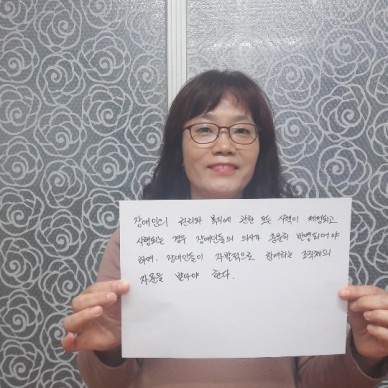 장애인의 권리와 복지에 관한 모든 시책이 제정되고
시행되는 경우 장애인들의 의사가 충분히 반영되어야
하며, 장애인들이 자발적으로 참여하는 조직체의
자문을 받아야 한다.